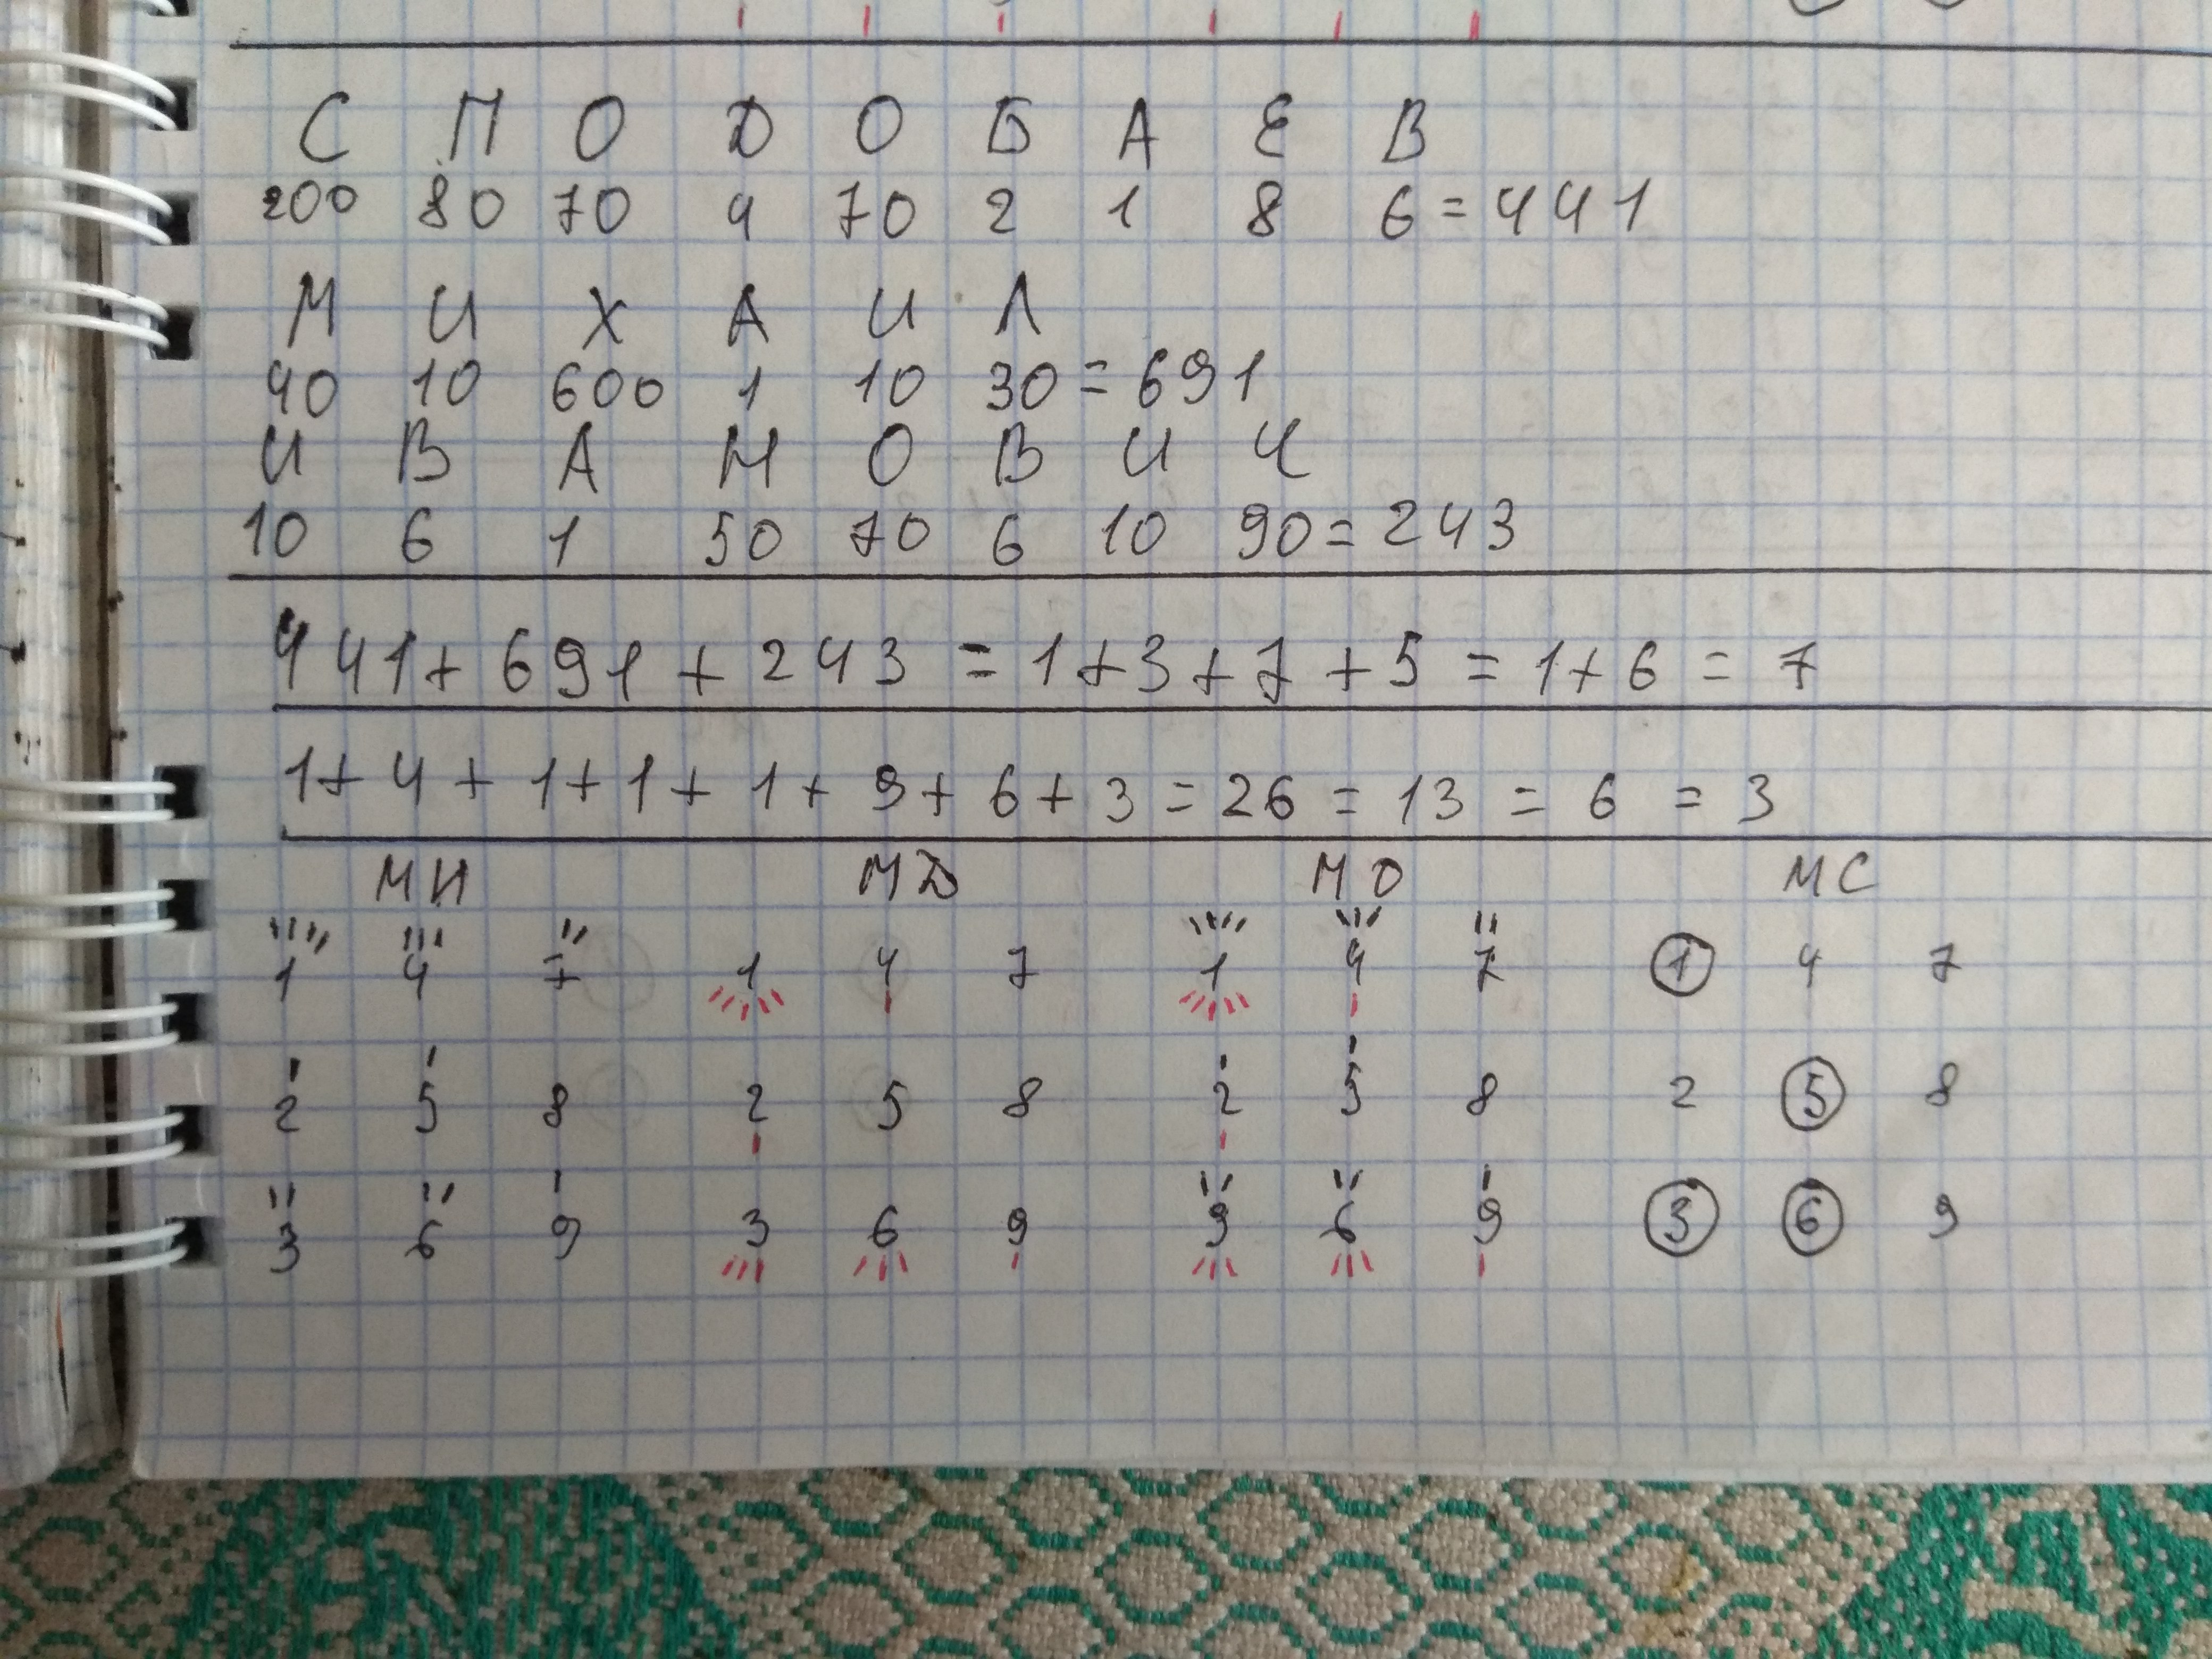 С П О Д О Б А Е В
200 80 70 4 70 2 1 8 6 = 441
М И Х А И Л
40 10 600 1 10 30 = 691
И В А Н О В И Ч
10 6 1 50 70 6 10 90 = 243
441 + 691 + 243 = 1 + 3 + 7 + 5 = 1 + 6 = 7
1 + 4 + 1 + 1 + 1 + 9 + 6 + 3 = 26 = 13 = 6 = 3
МИ МД МО МС
1 4 7 1 4 7 1 4 7 1 4 7
2 5 8 2 5 8 2 5 8 2 5 8
3 6 9 3 6 9 3 6 9 3 6 9